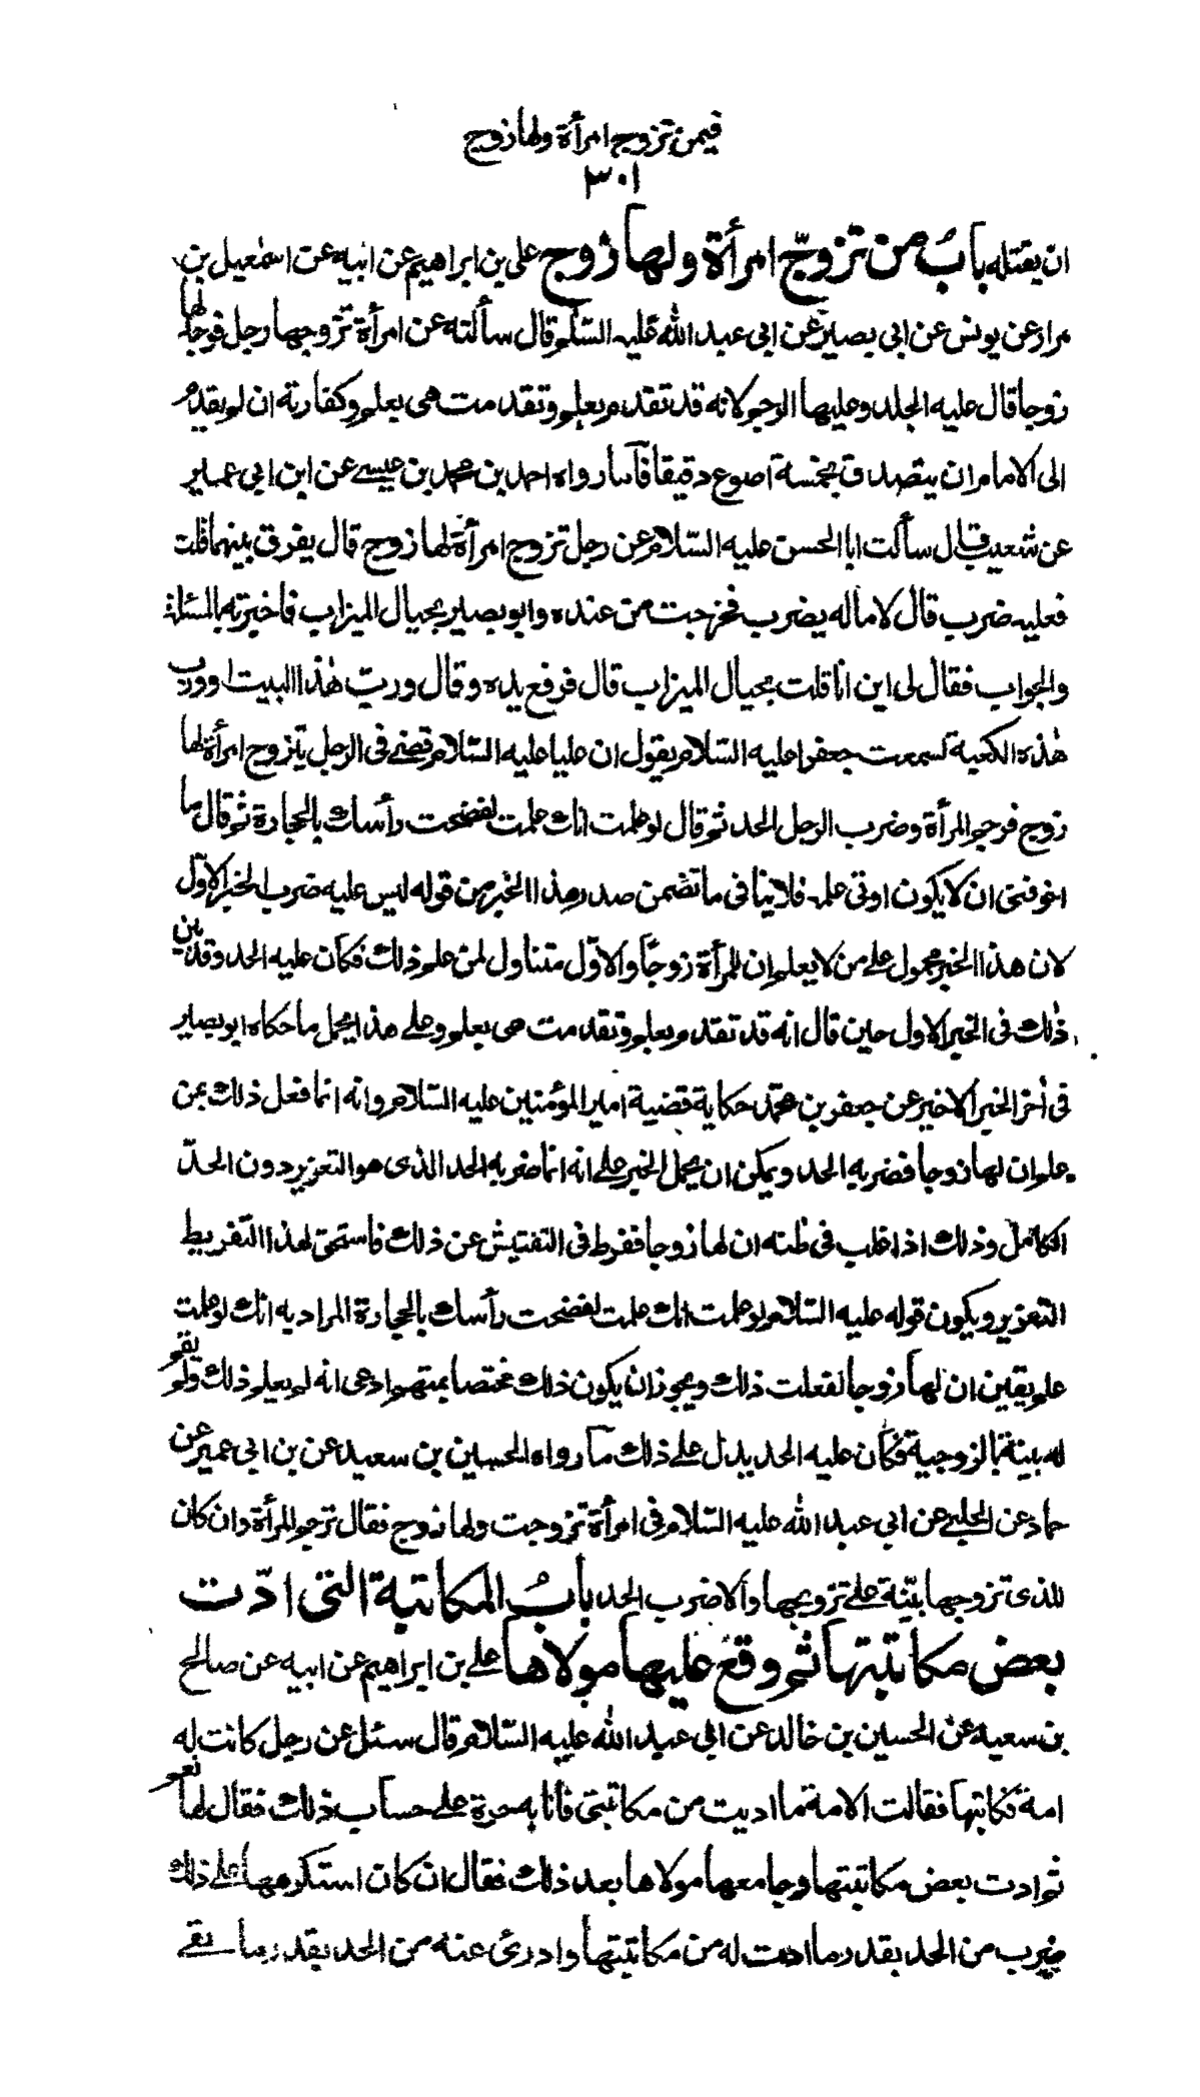 فيمن تزوج امرأة ولها زوج
٣٠١
ان يقتله باب من تزوّج امرأة ولها زوج على بن ابراهيم عن ابيه عن اسمٰعيل بن
مرار عن يونس عن ابى بصير عن ابى عبد الله عليه السّلم قال سألته عن امرأة تزوجها رجل فوجد لها
زوجا قال عليه الجلد وعليها الرجم لانه قد تقدم بعلم وتقدمت هى بعلم وكفارته ان لم يقدم
الى الامام ان يتصدق بخمسة اصوع دقيقا فاما رواه احمد بن محمد بن عيسے عن ابن ابى عمير
عن شعيب قال سألت ابا الحسن عليه السّلام عن رجل تزوج امرأة لها زوج قال يفرق بينهما قلت
فعليه ضرب قال لا ماله يضرب فخرجت من عنده وابو بصير بحيال الميزاب فاخبرته بالمسئلة
والجواب فقال لى اين انا قلت بحيال الميزاب قال فرفع يده وقال وربّ هٰذا البيت او ورب
هٰذه الكعبة لسمعت جعفرا عليه السّلام يقول ان عليا عليه السّلام قضے فى الرجل يتزوج امرأة لها
زوج فرجم المرأة وضرب الرجل الحد ثم قال لو علمت انك علمت لفضخت رأسك بالحجارة ثم قال ما
اخوفنى ان لا يكون اوتى علمه فلا ينافى ما تضمن صدر هذا الخبر من قوله ليس عليه ضرب الخبر الاوّل
لان هذا الخبر محمول علے من لا يعلم ان للمرأة زوجًا والاوّل متناول لمن علم ذلك فكان عليه الحد وقد بين
ذٰلك فى الخبر الاول حين قال انه قد تقدم بعلم وتقدمت هى بعلم وعلے هذا يحمل ما حكاه ابو بصير
فى أخر الخبر الاخير عن جعفر بن محمّد حكاية قضية امير المؤمنين عليه السّلام وانه انما فعل ذلك بمن
علم ان لها زوجا فضربه الحد ويمكن ان يحمل الخبر علے انه انما ضربه الحد الذى هو التعزير دون الحدّ
الكامل وذلك اذا غلب فى ظنه ان لها زوجا ففرط فى التفتيش عن ذلك فاستحق لهذا التفريط
التعزير ويكون قوله عليه السّلام لو علمت انك علمت لفضخت رأسك بالحجارة المراد به انك لو علمت
علم يقين ان لها زوجا لفعلت ذلك ويجوز ان يكون ذلك مختصا بمتهم ادعى انه لم يعلم ذلك ولم يقم
له بينة بالزوجية فكان عليه الحد يدل علے ذلك ما رواه الحسين بن سعيد عن بن ابى عمير عن
حماد عن الحلبے عن ابى عبد الله عليه السّلام فى امرأة تزوجت ولها زوج فقال ترجم المرأة وان كان
للذى تزوجها بيّنة علے تزويجها والا ضرب الحد باب المكاتبة التى ادّت
بعض مكاتبتها ثم وقع عليها مولاها علے بن ابراهيم عن ابيه عن صالح
بن سعيد عن الحسين بن خالد عن ابى عبد الله عليه السّلام قال سئل عن رجل كانت له
امة فكاتبها فقالت الامة ما اديت من مكاتبتى فانا به حرة علے حساب ذلك فقال لها نعم
فادت بعض مكاتبتها وجامعها مولاها بعد ذلك فقال ان كان استكرهها علے ذلك
ضرب من الحد بقدر ما ادت له من مكاتبتها وادرئ عنه من الحد بقدر ما بقے